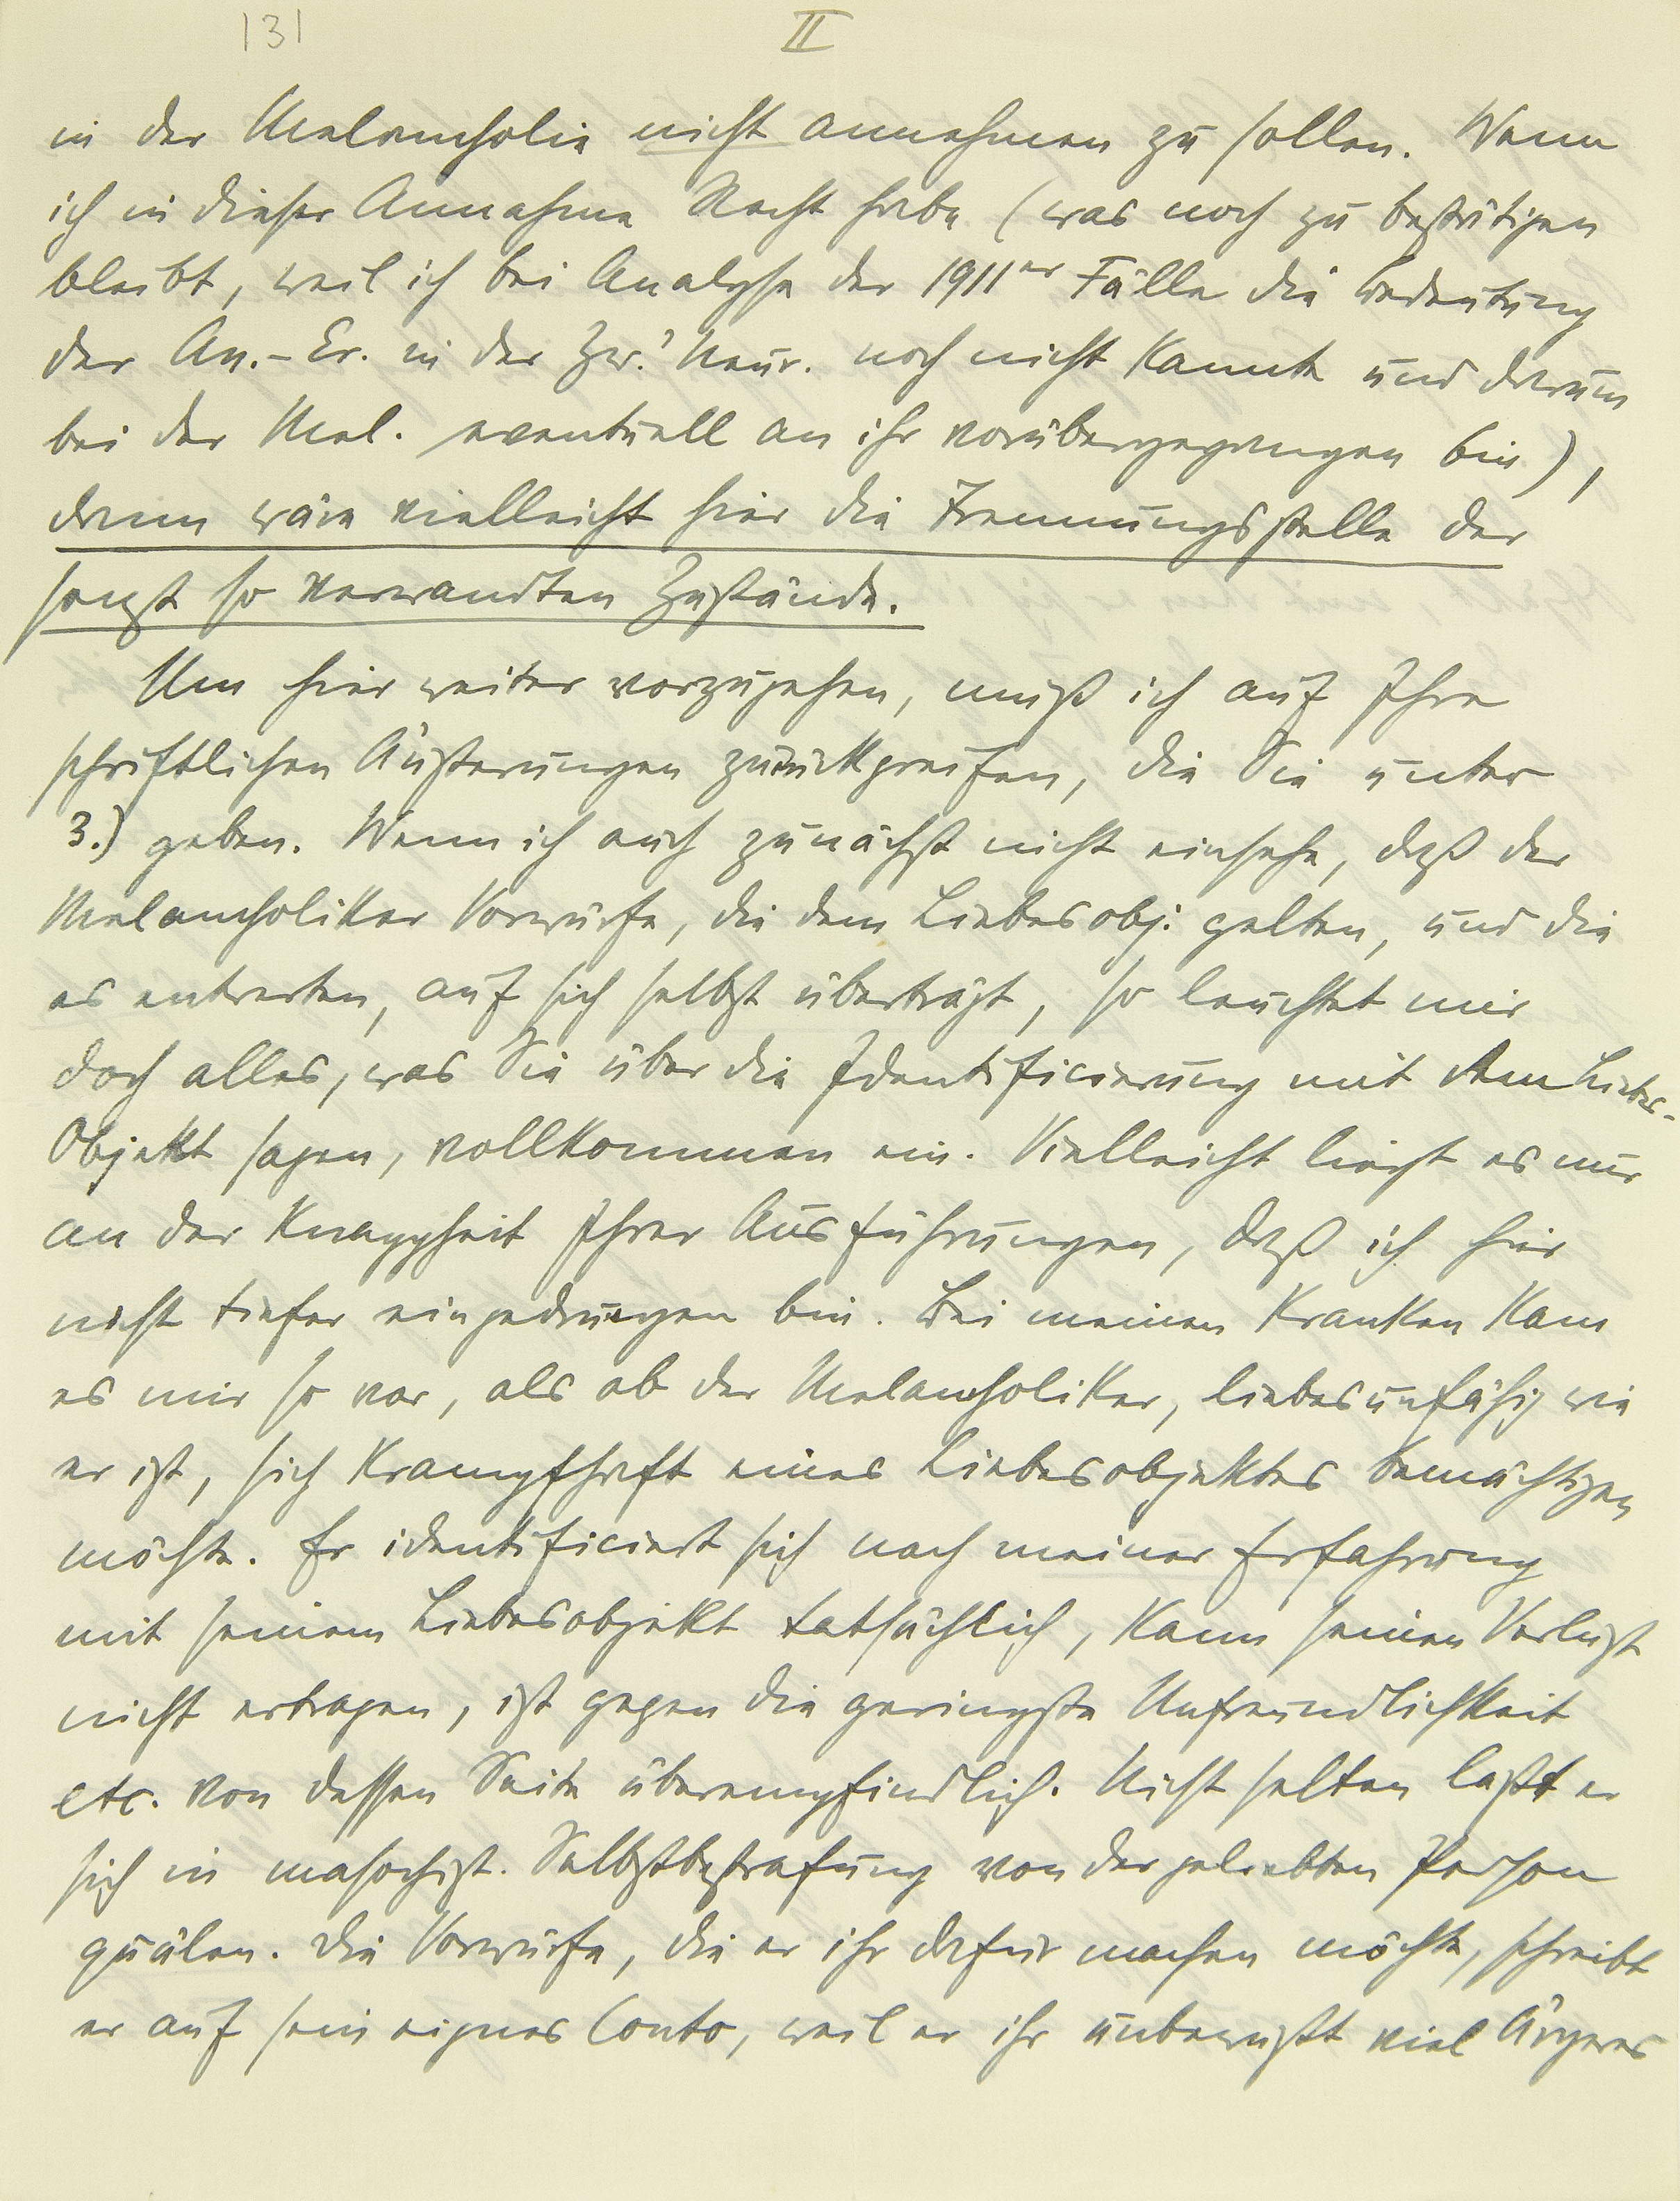 131
II
in der Melancholie nicht annehmen zu sollen. Wenn
ich in dieser Annahme Recht habe (was noch zu bestätigen
bleibt, weil ich bei Analyse der 1911er Fälle die Bedeutung
der An.-Er. in der Zw.-Neur. noch nicht kannte und darum
bei der Mel. eventuell an ihr vorübergegangen bin),
dann wäre vielleicht hier die Trennungsstelle der
sonst so verwandten Zustände.
Um hier weiter vorzugehen, muß ich auf Ihre
schriftlichen Äußerungen zurückgreifen, die Sie unter
3.) geben. Wenn ich auch zunächst nicht einsehe, daß der
Melancholiker Vorwürfe, die dem Liebesobj. gelten, und die
es entwerten, auf sich selbst überträgt, so leuchtet mir
doch alles, was Sie über die Identificierung mit dem Liebes-
Objekt sagen, vollkommen ein. Vielleicht liegt es nur
an der Knappheit Ihrer Ausführungen, daß ich hier
nicht tiefer eingedrungen bin. Bei meinen Kranken kam
es mir so vor, als ob der Melancholiker, liebesunfähig wie
er ist, sich krampfhaft eines Liebesobjektes bemächtigen
möchte. Er identificiert sich nach meiner Erfahrung
mit seinem Liebesobjekt tatsächlich, kann seinen Verlust
nicht ertragen, ist gegen die geringste Unfreundlichkeit
etc. von dessen Seite überempfindlich. Nicht selten laßt er
sich in masochist. Selbstbestrafung von der geliebten Person
quälen. Die Vorwürfe, die er ihr dafür machen möchte, schreibt
er auf sein eignes Conto, weil er ihr unbewußt viel Ärgeres